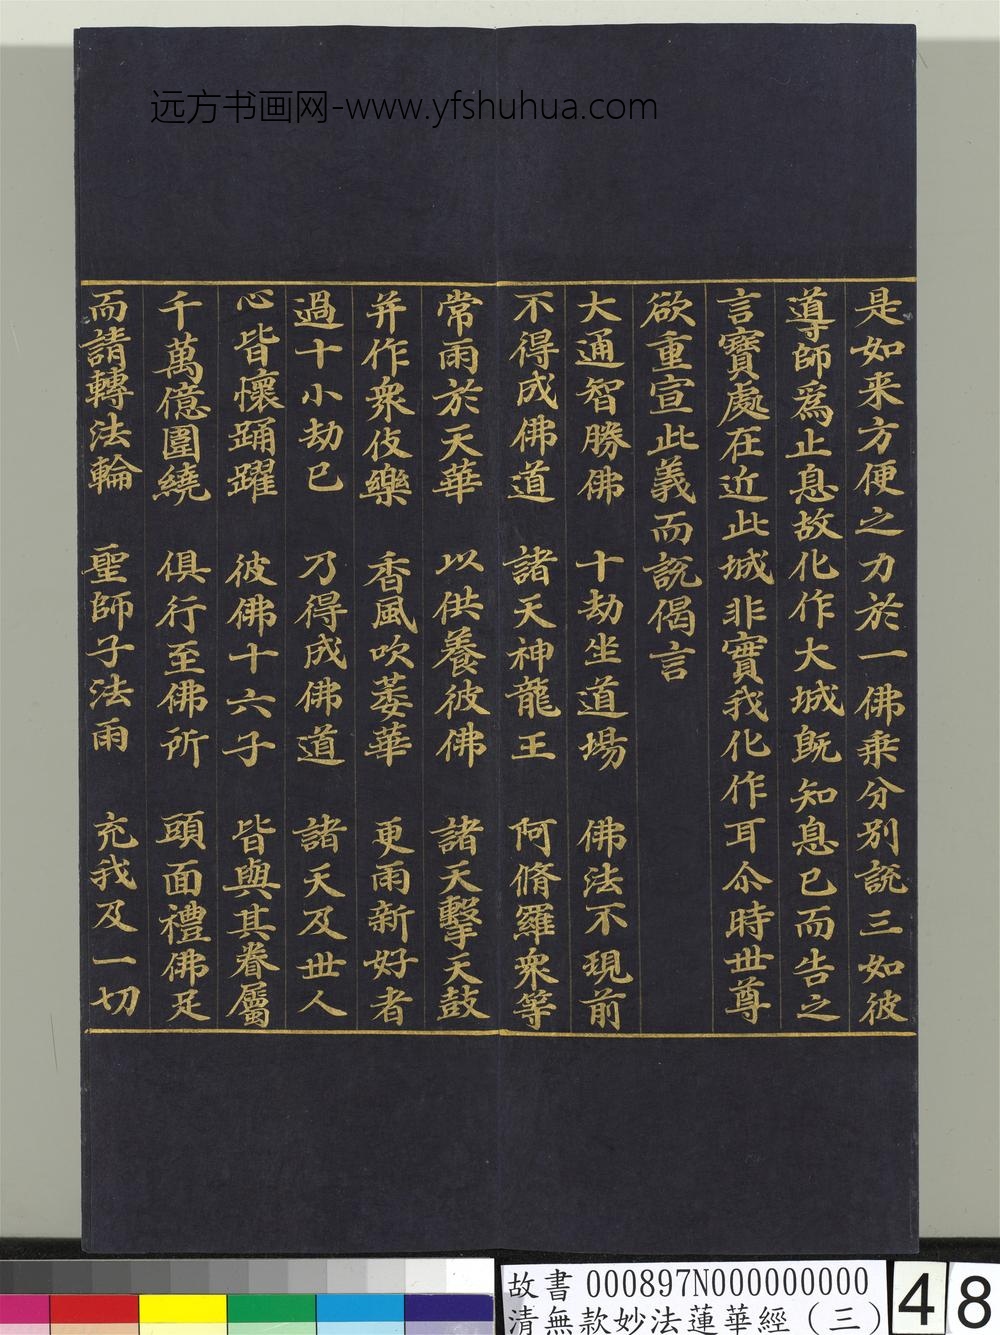 远方书画网-www.yfshuhua.com
是如来方便之力於一佛乗分別說三如彼
導師爲止息故化作大城旣知息已而告之
言寶處在近此城非實我化作耳尒時世尊
欲重宣此義而說偈言
大通智勝佛 十劫坐道場 佛法不現前
不得成佛道 諸天神龍王 阿脩羅衆等
常雨於天華 以供養彼佛 諸天擊天鼓
并作衆伎樂 香風吹萎華 更雨新好者
過十小劫已 乃得成佛道 諸天及世人
心皆懷踊躍 彼佛十六子 皆與其眷屬
千萬億圍繞 俱行至佛所 頭面禮佛足
而請轉法輪 聖師子法雨 充我及一切
故書 000897N000000000
清無款妙法蓮華經（三）
48